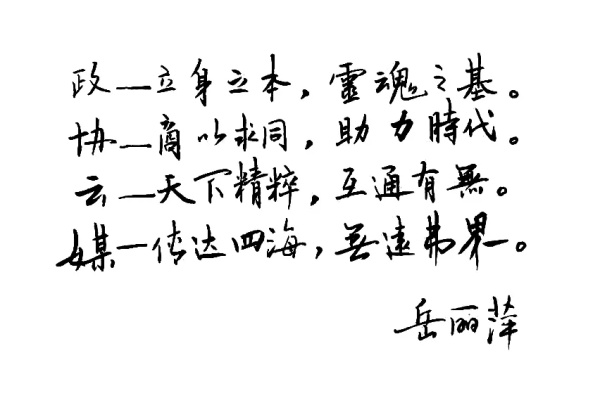 政—立身之本，靈魂之基。
协—商以求同，助力時代。
云—天下精粹，互通有無。
媒—传达四海，無遠弗界。
岳丽萍